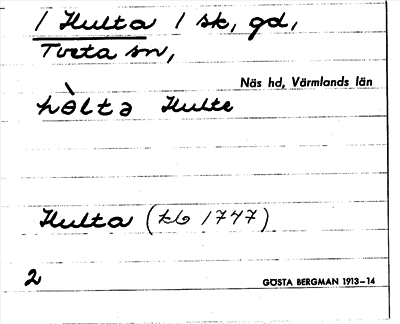 1 Hulta 1 sk, gd,
Tveta sn,
Näs hd, Värmlands län
hὸltə Hulte
Hulta (kb 1747)
2
GÖSTA BERGMAN 1913–14